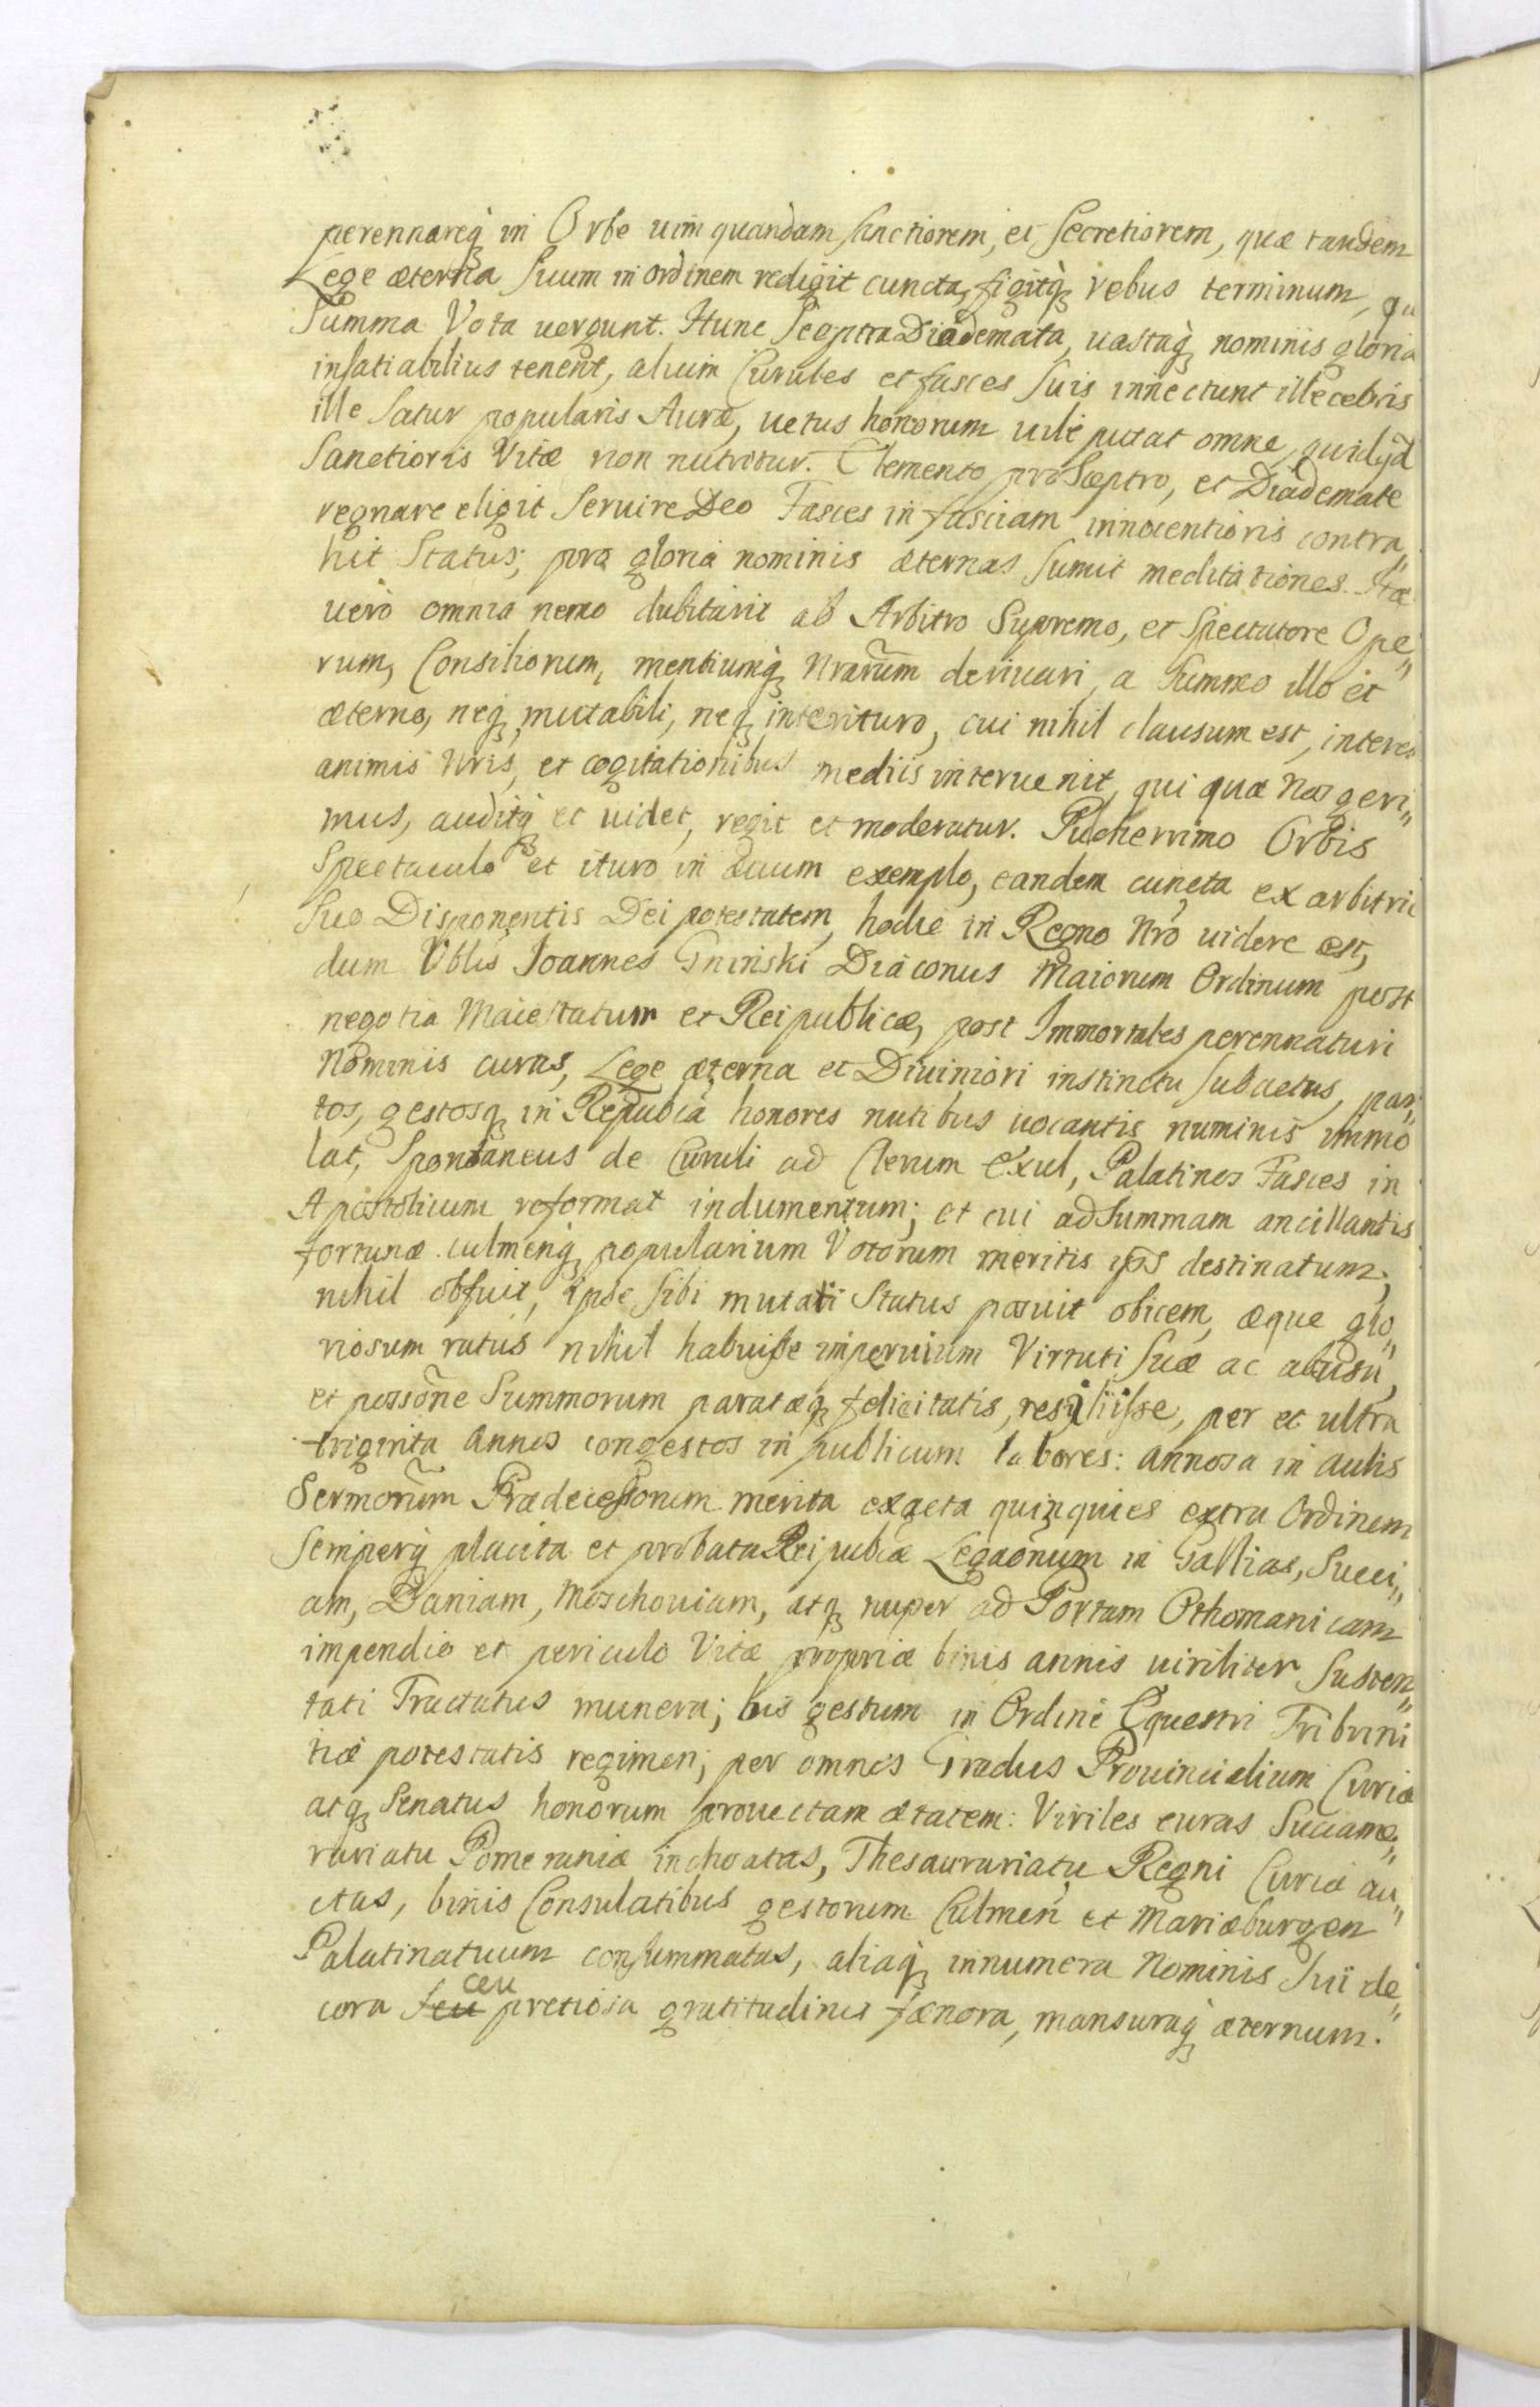 perennareq́ in Orbe uim quandam sanctiorem, et secretiorem, quæ tandem
Lege æterna suum in ordinem redigit cuncta, figitq́ rebus terminum, qu
Summa Vota uergunt. Hunc Sceptra Diademata, uastaq́ nominis gloria
insatiabilius tenent, alium Curules et fasces suis innectunt illecebris
ille satur popularis Auræ, uetus honorum uile putat omne, quidq́d
Sanctioris Vitæ non nutritur. Clemento pro Sceptro, et Diademate
regnare eligit seruire Deo Fasces in fasciam innocentioris contra„
hit Status; pro gloria nominis æternas sumit meditationes. Itæ
uero omnia nemo dubitarit ab Arbitro Supremo, et Spectatore Ope„
rum, Consiliorum, mentiumq́ nrarum deriuari, a Summo illo et
æterno, neq́ mutabili, neq́ interituro, cui nihil clausum est, interes
animis nris, et cogitationibus mediis interuenit, qui quæ nos geri„
mus, auditq́ et uidet, regit et moderatur. Pulcherrimo Orbis
Spectaculo et ituro in æuum exemplo, eandem cuncta ex arbitrio
suo Disponentis Dei potestatem, hodie in Regno Nro uidere est,
dum Vblis Joannes Gniński Diaconus Maiorum Ordinum post
negotia Maiestatum et Reipublicæ, post Immortales perennaturi
Nominis curas, Lege æterna et Diuiniori instinctu subactus, par„
tos, gestosq́ in Republica honores nutibus uocantis numinis immo
lat, Spontaneus de Curuli ad Clerum Exul, Palatinos Fasces in
Apostolicum reformat indumentum; et cui ad summam ancillantis
fortunæ culmenq́ popularium Votorum meritis ips destinatum,
nihil obfuit, ipse sibi mutati Status posuit obicem, æque glo„
riosum ratus nihil habuisse imperuium Virtuti suæ ac abusu,
et possone Summorum paratæq́ felicitatis, resiliisse, per et ultra
triginta annos congestos in publicum labores: annosa in aulis
Sermorum Prædecessorum merita exacta quinquies extra Ordinem
semperq́ placita et probata Reipublicæ Legaonum in Gallias, Sueci„
am, Daniam, Moschouiam, atq́ nuper ad Portam Othomanicam
impendio et periculo Vitæ propriæ binis annis uiriliter susten„
tati Tractatus munera; bis gestum in Ordine Equestri Tribuni
tiæ potestatis regimen; per omnes Gradus Prouincialium Curiæ
atq́ Senatus honorum prouectam ætatem: Viriles curas Succame„
rariatu Pomeraniæ inchoatas, Thesaurariatu Regni Curiæ au„
ctas, binis Consulatibus gestorum Culmen et Mariæburgen
Palatinatuum consummatas, aliaq́ innumera Nominis sui de„
cora seu ceu pretiosa gratitudinis fænora, mansuraq́ æternum.